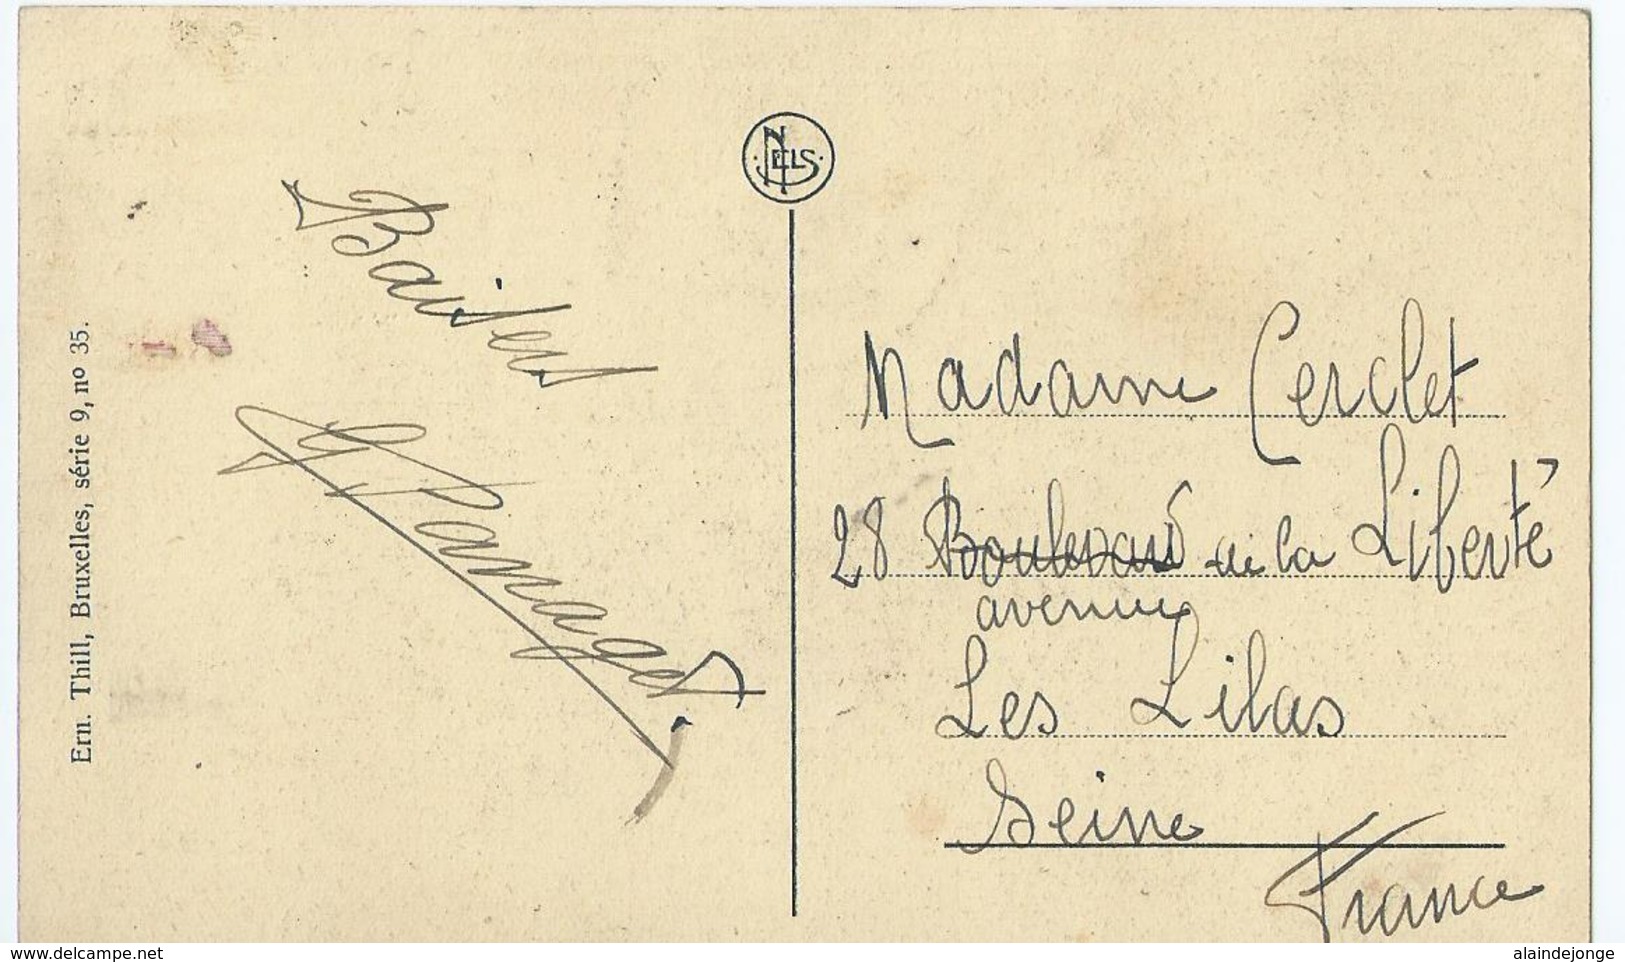 Ern. Thill, Bruxelles, série 9, nº 35.
NELS
Baisers
Madame Cerclet
28 Boulevard de la Liberté
avenue
Les Lilas
Seine
France
www.delcampe.net
alaindejonge